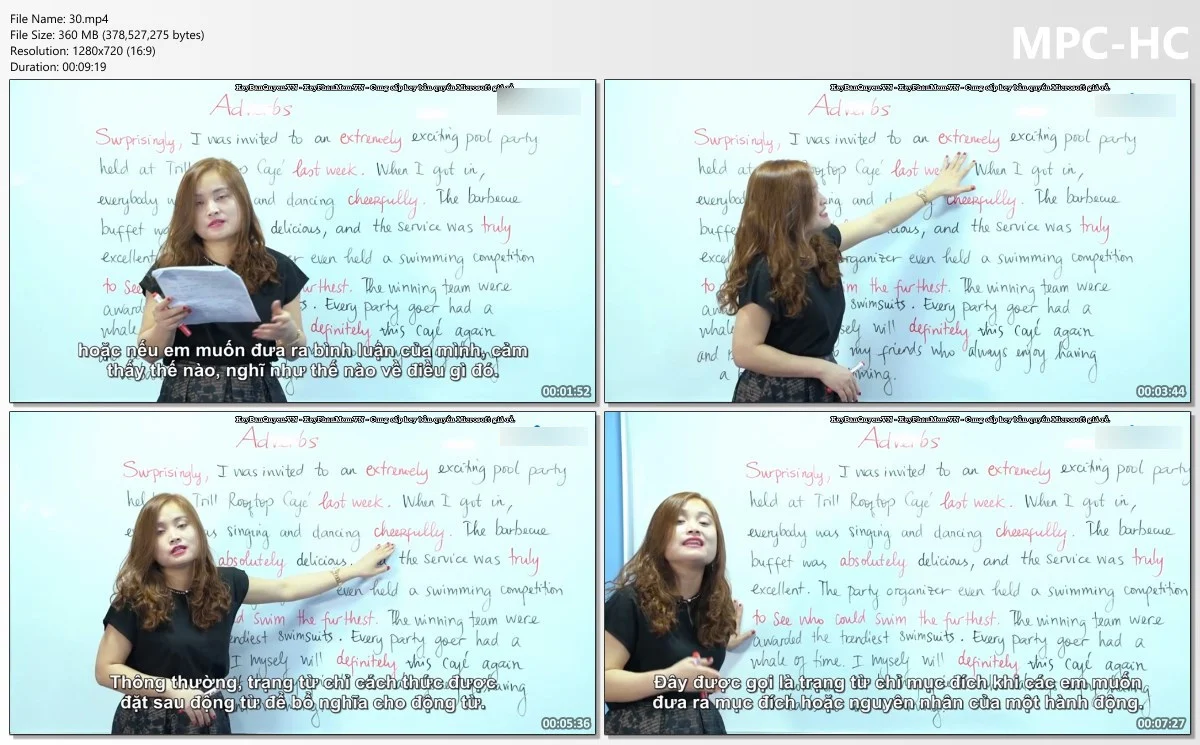 File Name: 30.mp4
File Size: 360 MB (378,527,275 bytes)
Resolution: 1280x720 (16:9)
Duration: 00:09:19
MPC-HC
Adverbs
Surprisingly, I was invited to an extremely exciting pool party
held at Trill Cafe' last week. When I got in,
everybody and dancing cheerfully. The barbecue
buffet delicious, and the service was truly
excellent even held a swimming competition
to see furthest. The winning team were
Every party goer had a
whale definitely this Café again
hoặc nếu em muốn đưa ra bình luận của mình, cảm
thấy thế nào, nghĩ như thế nào về điều gì đó.
00:01:52
Adverbs
Surprisingly, I was invited to an extremely exciting pool party
held at Cafe' last When I got in,
cheerfully. The barbecue
buffet and the service was truly
organizer even held a swimming competition
to the furthest. The winning team were
swimsuits. Every party goer had a
whale will definitely this Café again
and my friends who always enjoy having
a
00:03:44
Adverbs
Surprisingly, I was invited to an extremely exciting pool party
Trill Rooftop Cafe' last week. When I got in,
singing and dancing cheerfully. The barbecue
absolutely delicious, the service was truly
even held a swimming competition
swim the furthest. The winning team were
swimsuits. Every party goer had a
I myself will definitely this Café again
having
Thông thường, trạng từ chỉ cách thức được
đặt sau động từ để bổ nghĩa cho động từ.
00:05:36
Adverbs
Surprisingly, I was invited to an extremely exciting pool party
held at Trill Rooftop Cafe' last week. When I got in,
everybody was singing and dancing cheerfully. The barbecue
buffet was absolutely delicious, and the service was truly
excellent. The party organizer even held a swimming competition
to see who could swim the furthest. The winning team were
awarded the trendiest swimsuits. Every party goer had a
whale of time. I myself will definitely this Café again
Đây được gọi là trạng từ chỉ mục đích khi các em muốn
đưa ra mục đích hoặc nguyên nhân của một hành động.
00:07:27